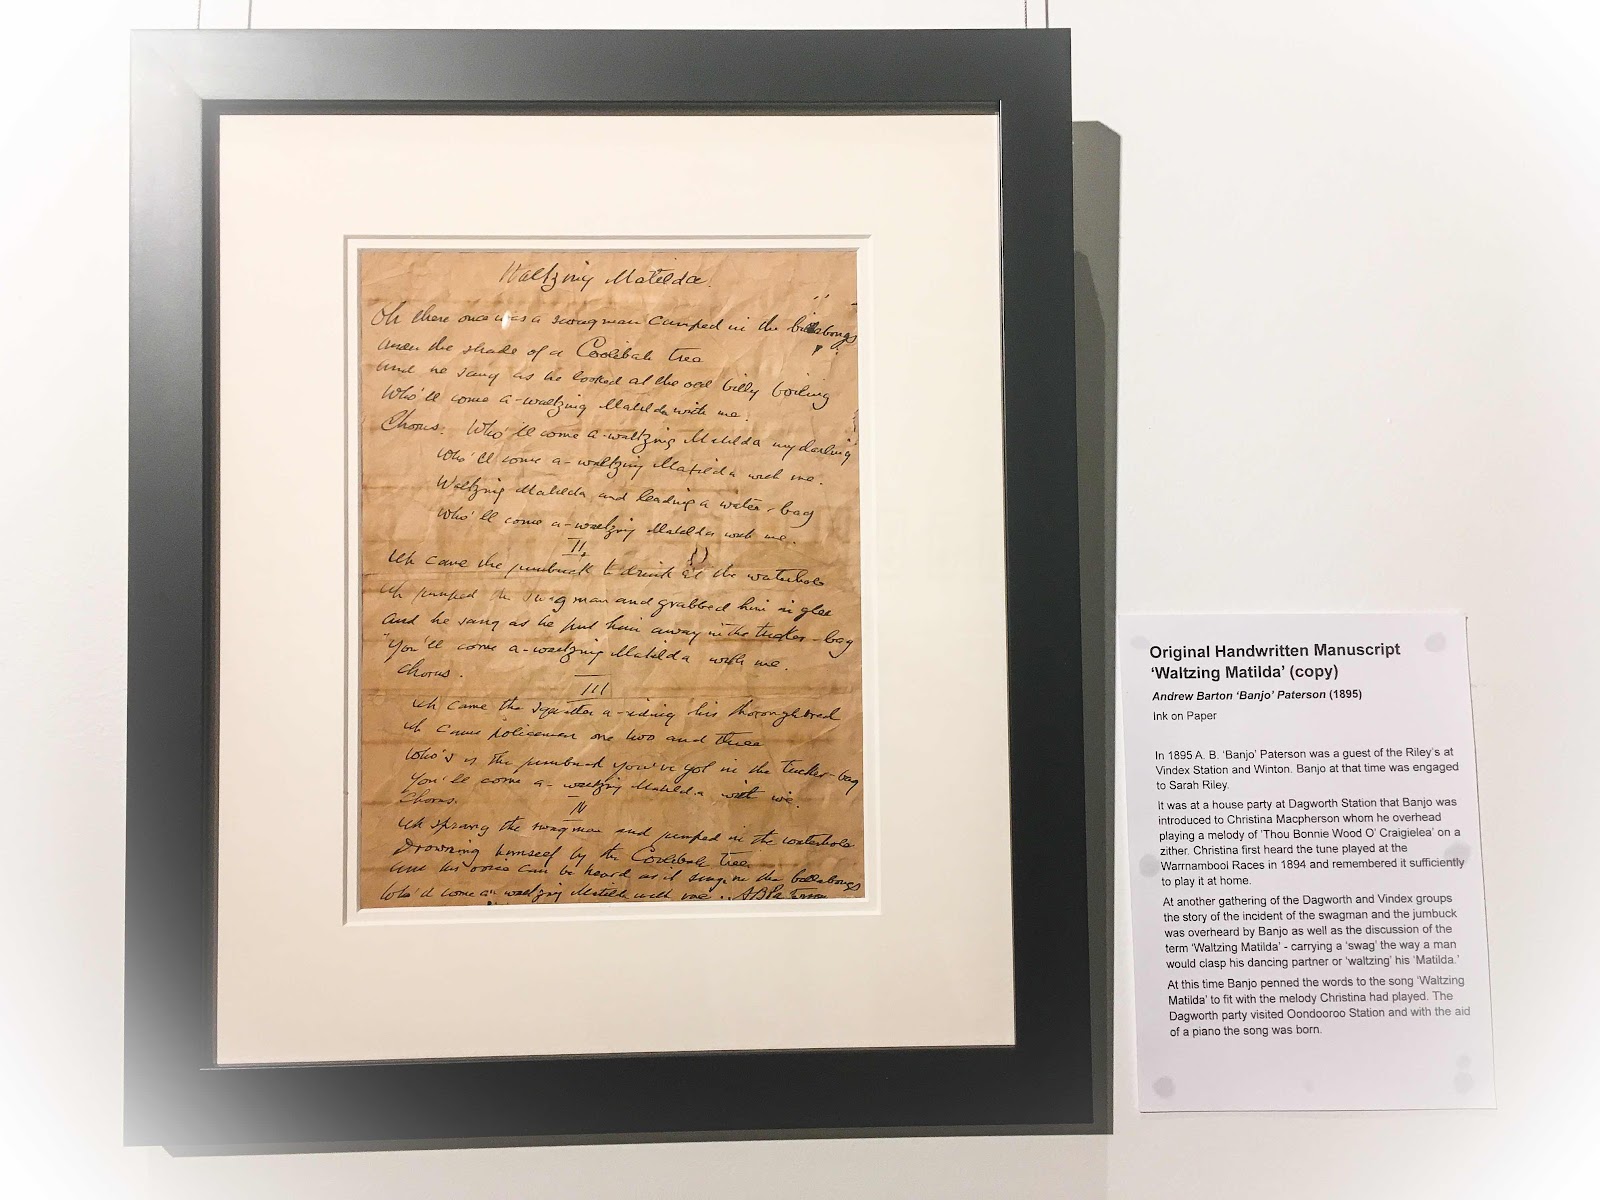 Waltzing Matilda.
Oh there once was a swagman camped in the billabongs
under the shade of a Coolibah tree
and he sang as he looked at the old billy boiling
Who'll come a-waltzing Matilda with me.
Chorus. Who'll come a-waltzing Matilda my darling
Who'll come a-waltzing Matilda with me.
Waltzing Matilda and leading a water-bag
Who'll come a-waltzing Matilda with me.
II
Up came the jumbuck to drink at the waterhole
Up jumped the swagman and grabbed him in glee
and he sang as he put him away in the tucker-bag
"You'll come a-waltzing Matilda with me.
Chorus.
III
Up came the squatter a-riding his thoroughbred
Up came policemen one two and three
Who's is the jumbuck you've got in the tucker-bag
You'll come a-waltzing Matilda with we.
Chorus.
IV
Up sprang the swagman and jumped in the waterhole
Drowning himself by the Coolibah tree
and his voice can be heard as it sings in the billabongs
Who'll come a-waltzing Matilda with me. ABPaterson
Original Handwritten Manuscript
‘Waltzing Matilda’ (copy)
Andrew Barton ‘Banjo’ Paterson (1895)
Ink on Paper
In 1895 A. B. ‘Banjo’ Paterson was a guest of the Riley's at
Vindex Station and Winton. Banjo at that time was engaged
to Sarah Riley.
It was at a house party at Dagworth Station that Banjo was
introduced to Christina Macpherson whom he overhead
playing a melody of ‘Thou Bonnie Wood O’ Craigielea’ on a
zither. Christina first heard the tune played at the
Warrnambool Races in 1894 and remembered it sufficiently
to play it at home.
At another gathering of the Dagworth and Vindex groups
the story of the incident of the swagman and the jumbuck
was overheard by Banjo as well as the discussion of the
term ‘Waltzing Matilda’ - carrying a ‘swag’ the way a man
would clasp his dancing partner or ‘waltzing’ his ‘Matilda.’
At this time Banjo penned the words to the song ‘Waltzing
Matilda’ to fit with the melody Christina had played. The
Dagworth party visited Oondooroo Station and with the aid
of a piano the song was born.